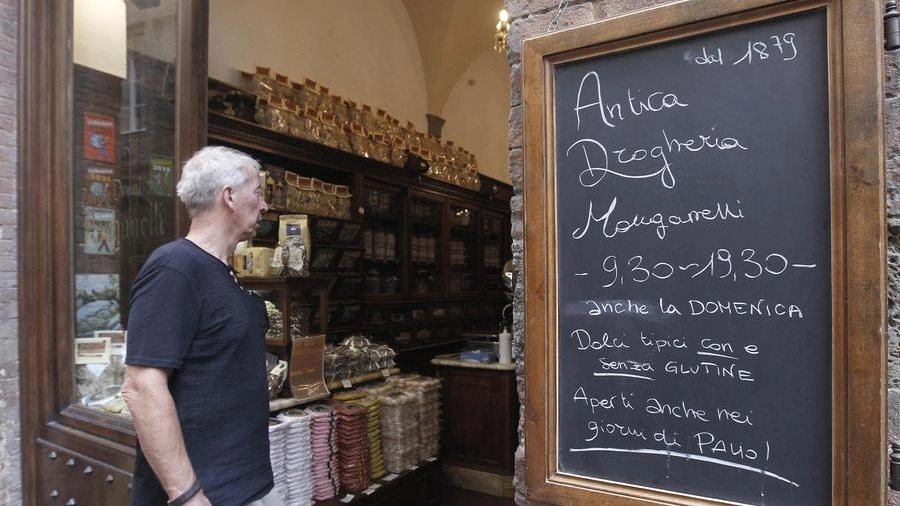 dal 1879
Antica
Drogheria
Manganelli
- 9,30 ~ 19,30 -
anche la DOMENICA
Dolci tipici con e
senza GLUTINE
Aperti anche nei
giorni di PALIO!